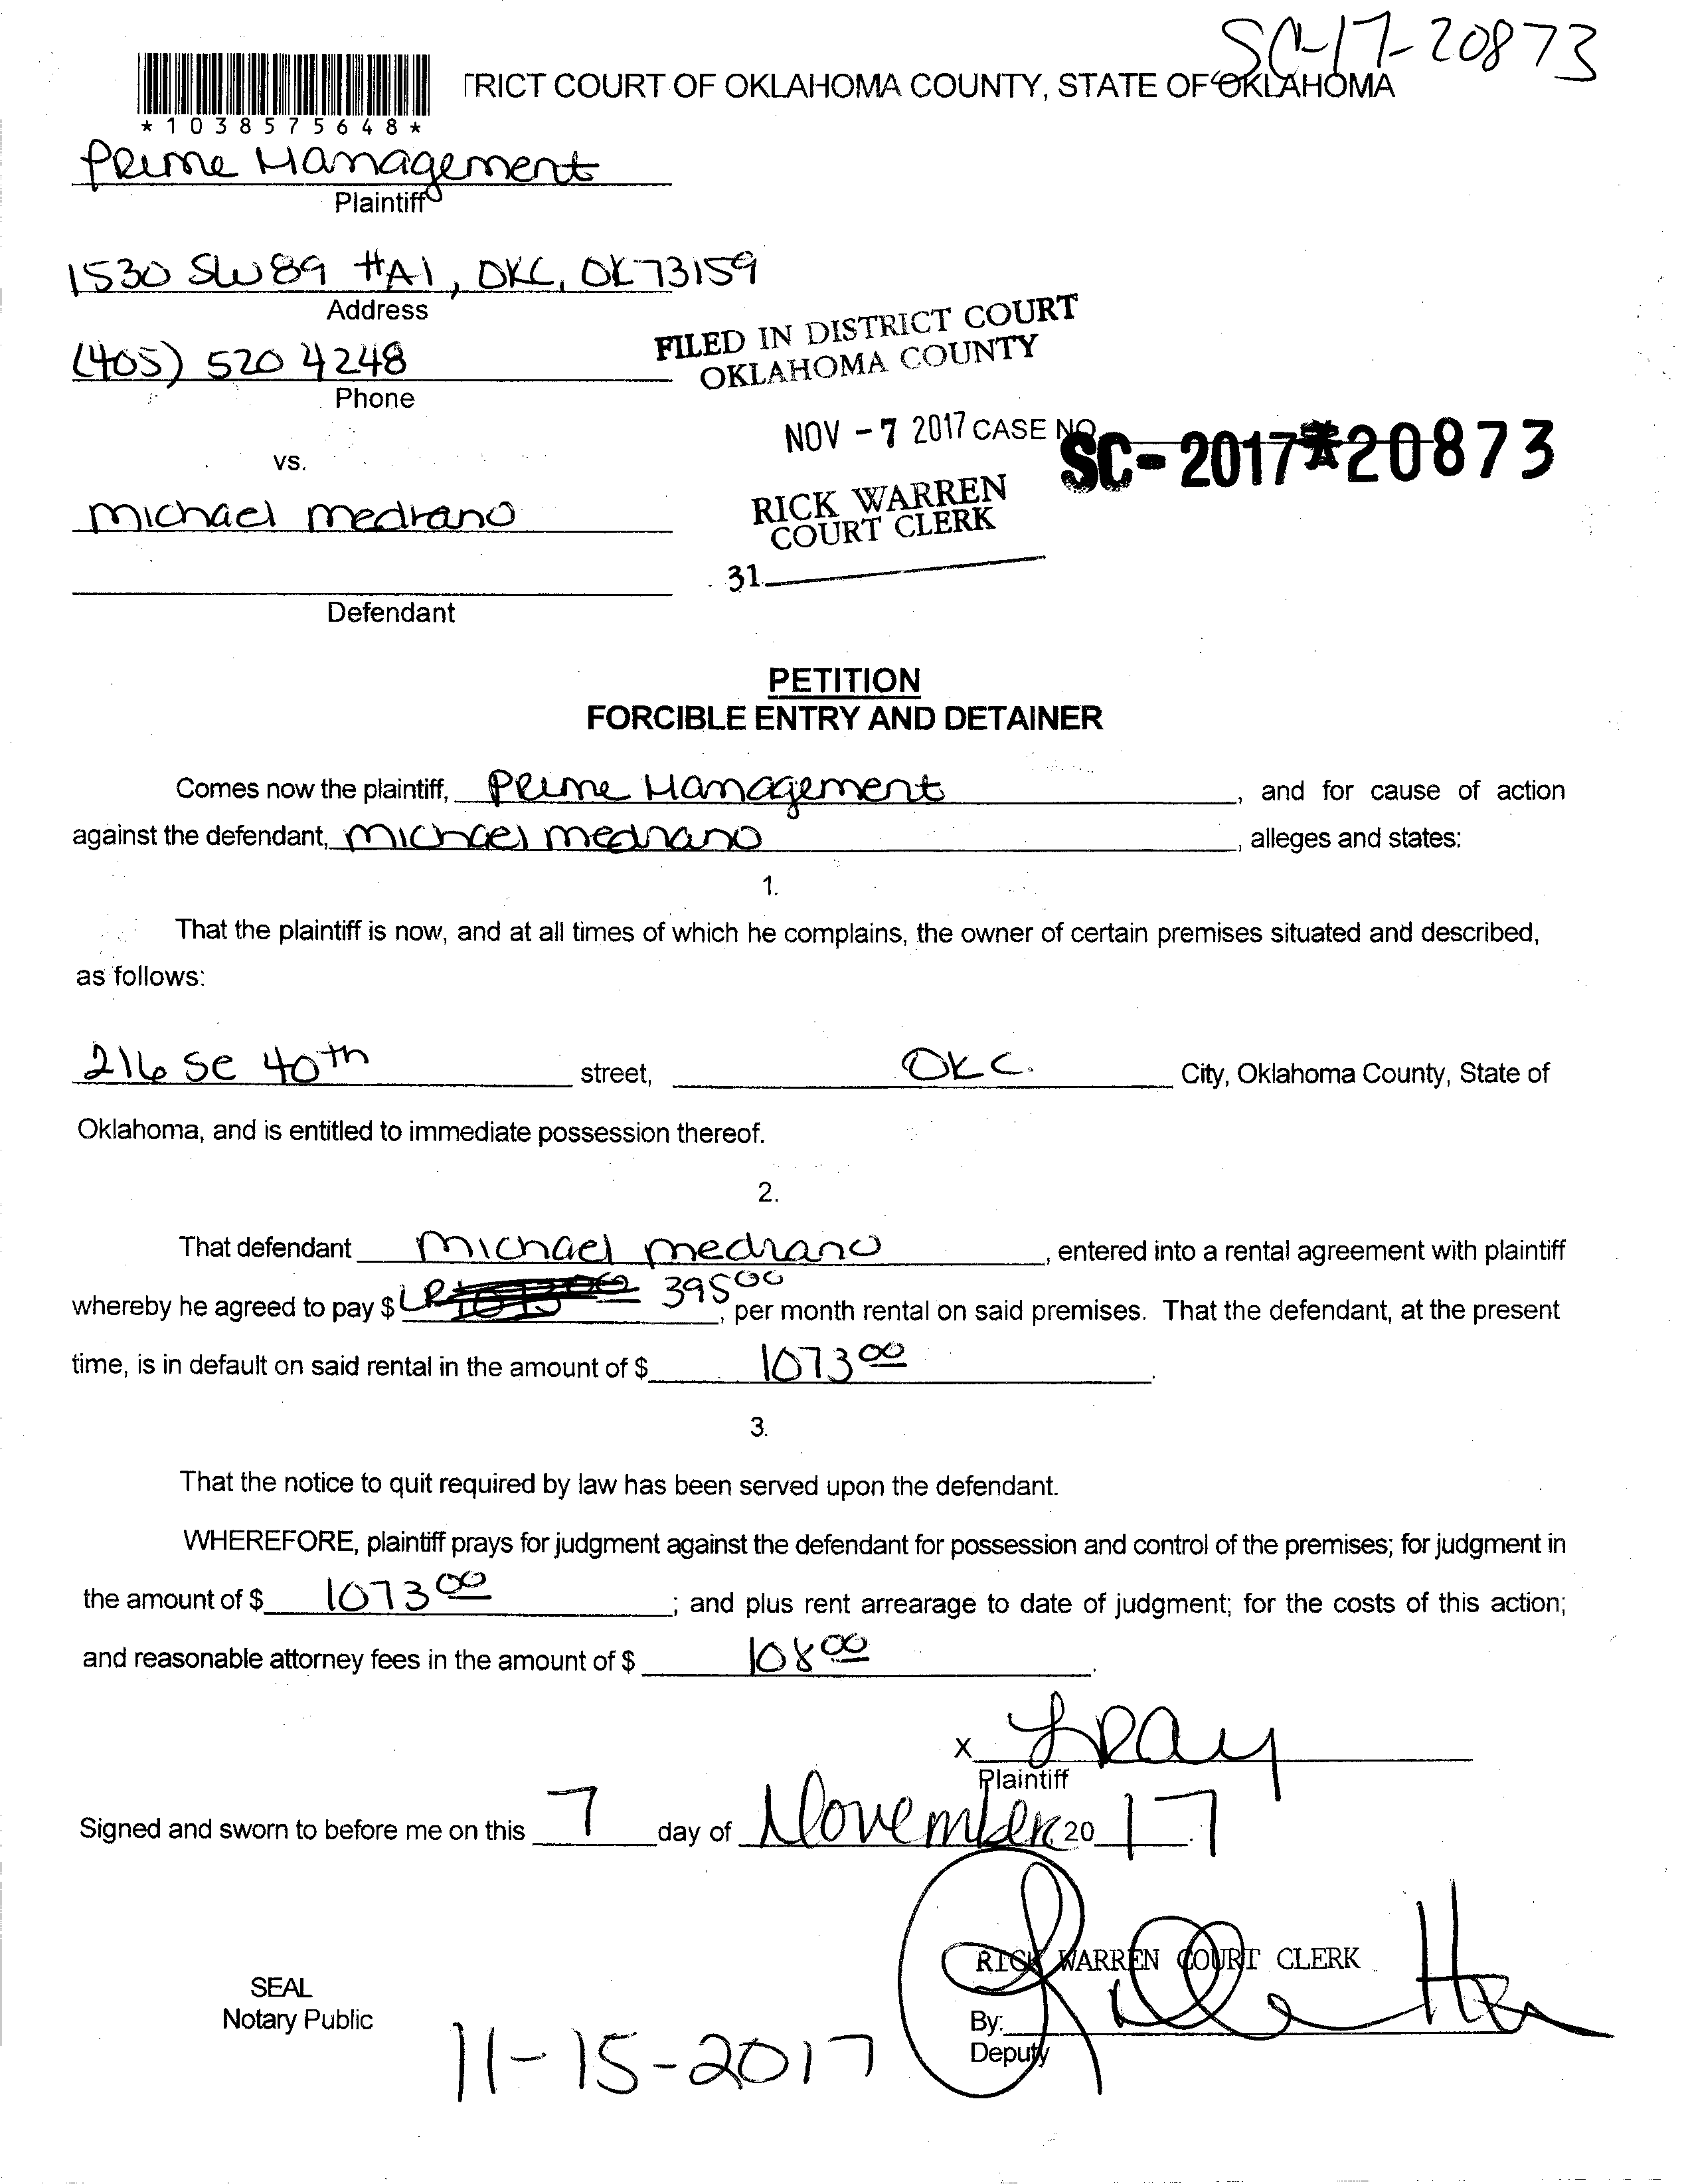 SC-17-20873
TRICT COURT OF OKLAHOMA COUNTY, STATE OF OKLAHOMA
*1038575648*
Prime Management
Plaintiff
1530 SW 89 #A1, OKC, OK 73159
Address
FILED IN DISTRICT COURT
OKLAHOMA COUNTY
(405) 520 4248
Phone
NOV - 7 2017 CASE NO. SC-2017-20873
vs.
RICK WARREN
COURT CLERK
michael medrano
31
Defendant
PETITION
FORCIBLE ENTRY AND DETAINER
Comes now the plaintiff, Prime Management, and for cause of action
against the defendant, michael medrano, alleges and states:
1.
That the plaintiff is now, and at all times of which he complains, the owner of certain premises situated and described,
as follows:
216 SE 40th street, OKC. City, Oklahoma County, State of
Oklahoma, and is entitled to immediate possession thereof.
2.
That defendant michael medrano, entered into a rental agreement with plaintiff
whereby he agreed to pay $ LR 395 00, per month rental on said premises. That the defendant, at the present
time, is in default on said rental in the amount of $ 1073 00.
3.
That the notice to quit required by law has been served upon the defendant.
WHEREFORE, plaintiff prays for judgment against the defendant for possession and control of the premises; for judgment in
the amount of $ 1073 00; and plus rent arrearage to date of judgment; for the costs of this action;
and reasonable attorney fees in the amount of $ 108 00.
x LRay
Plaintiff
Signed and sworn to before me on this 7 day of November, 20 17.
RICK WARREN COURT CLERK
SEAL
Notary Public
By:
Deputy
11-15-2017